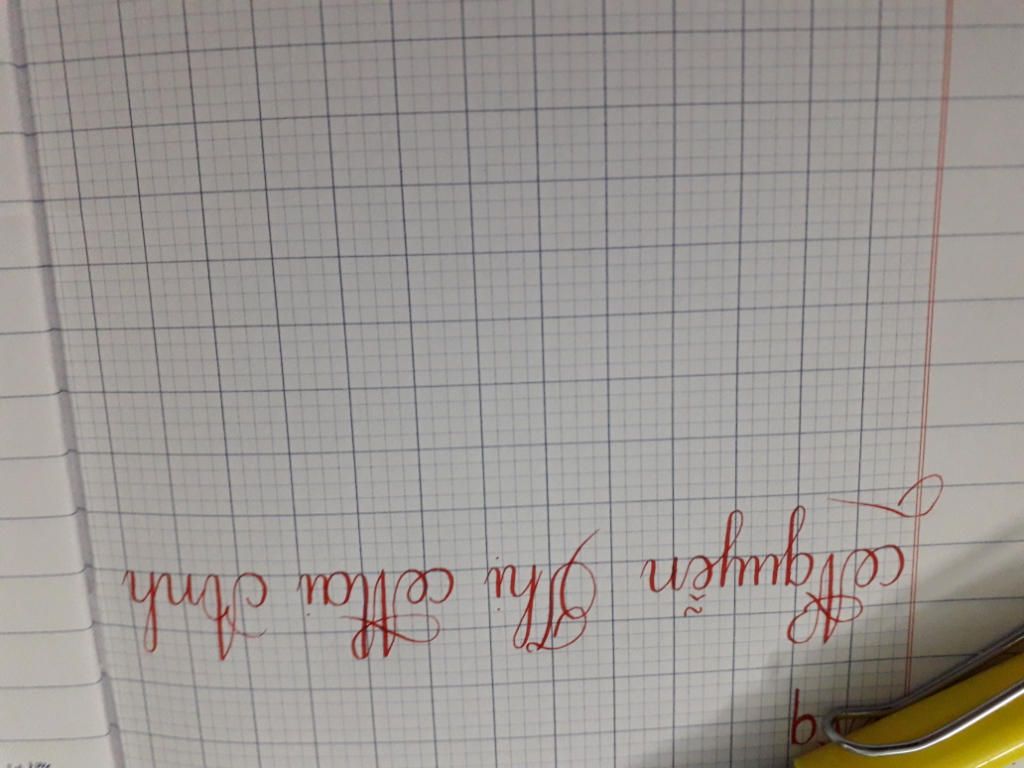 Nguyễn Thị Mai Anh